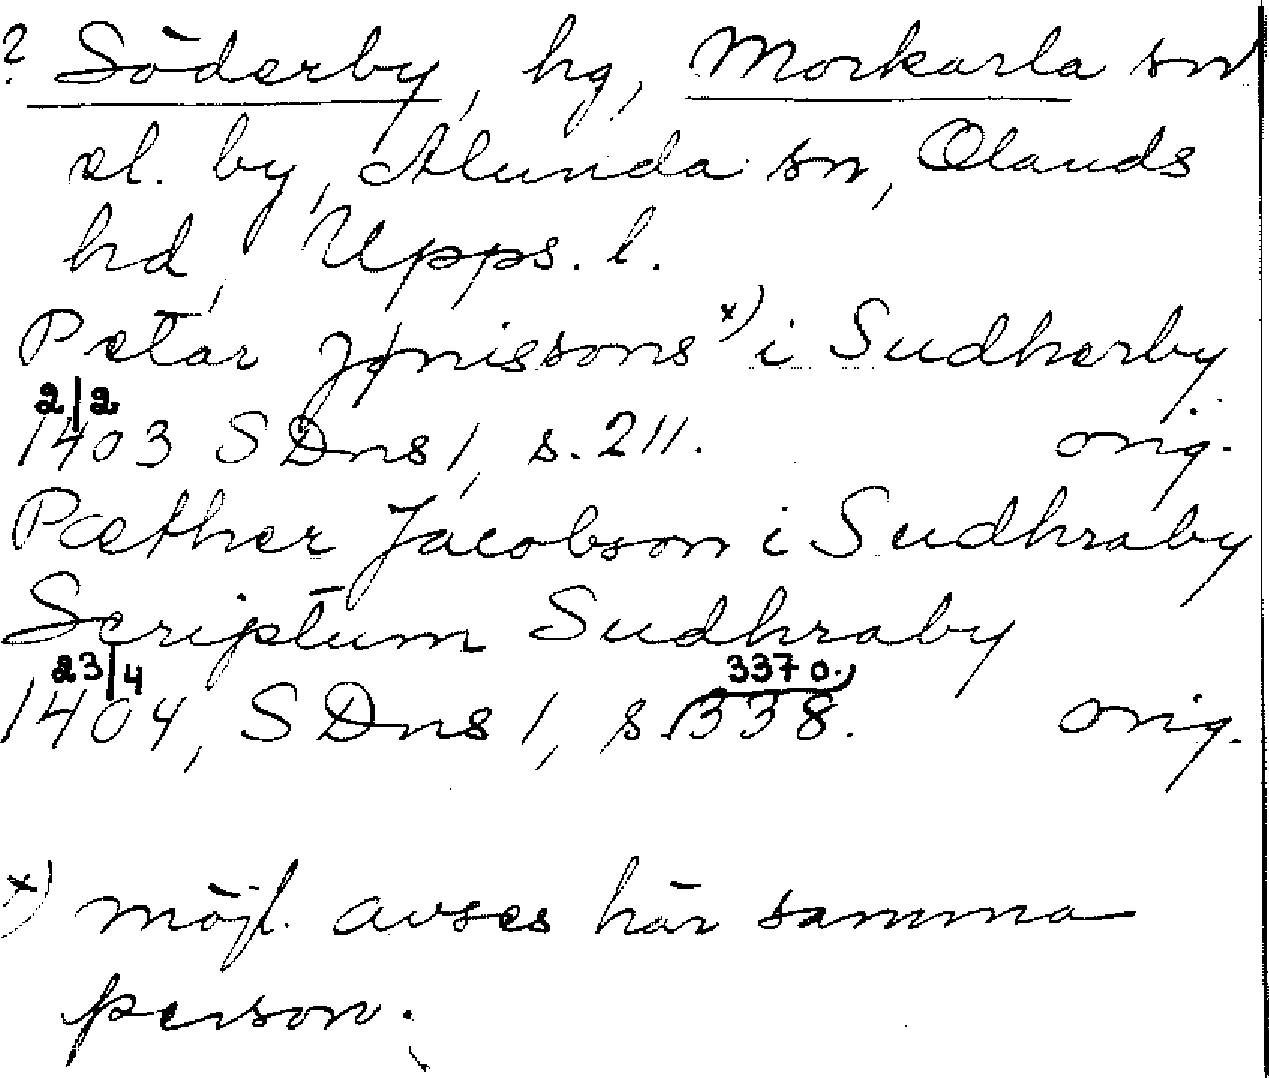 ? Söderby, hg, Morkarla sn
el. by, Alunda sn, Olands
hd, Upps. l.
Petar Jønissons x) i Sudherby
2/2
1403 SDns 1, s. 211. orig.
Pæther Jacobson i Sudhraby
Scriptum Sudhraby
23/4 337 o.
1404, SDns 1, s. 338. orig.
x) möjl. avses här samma
person.